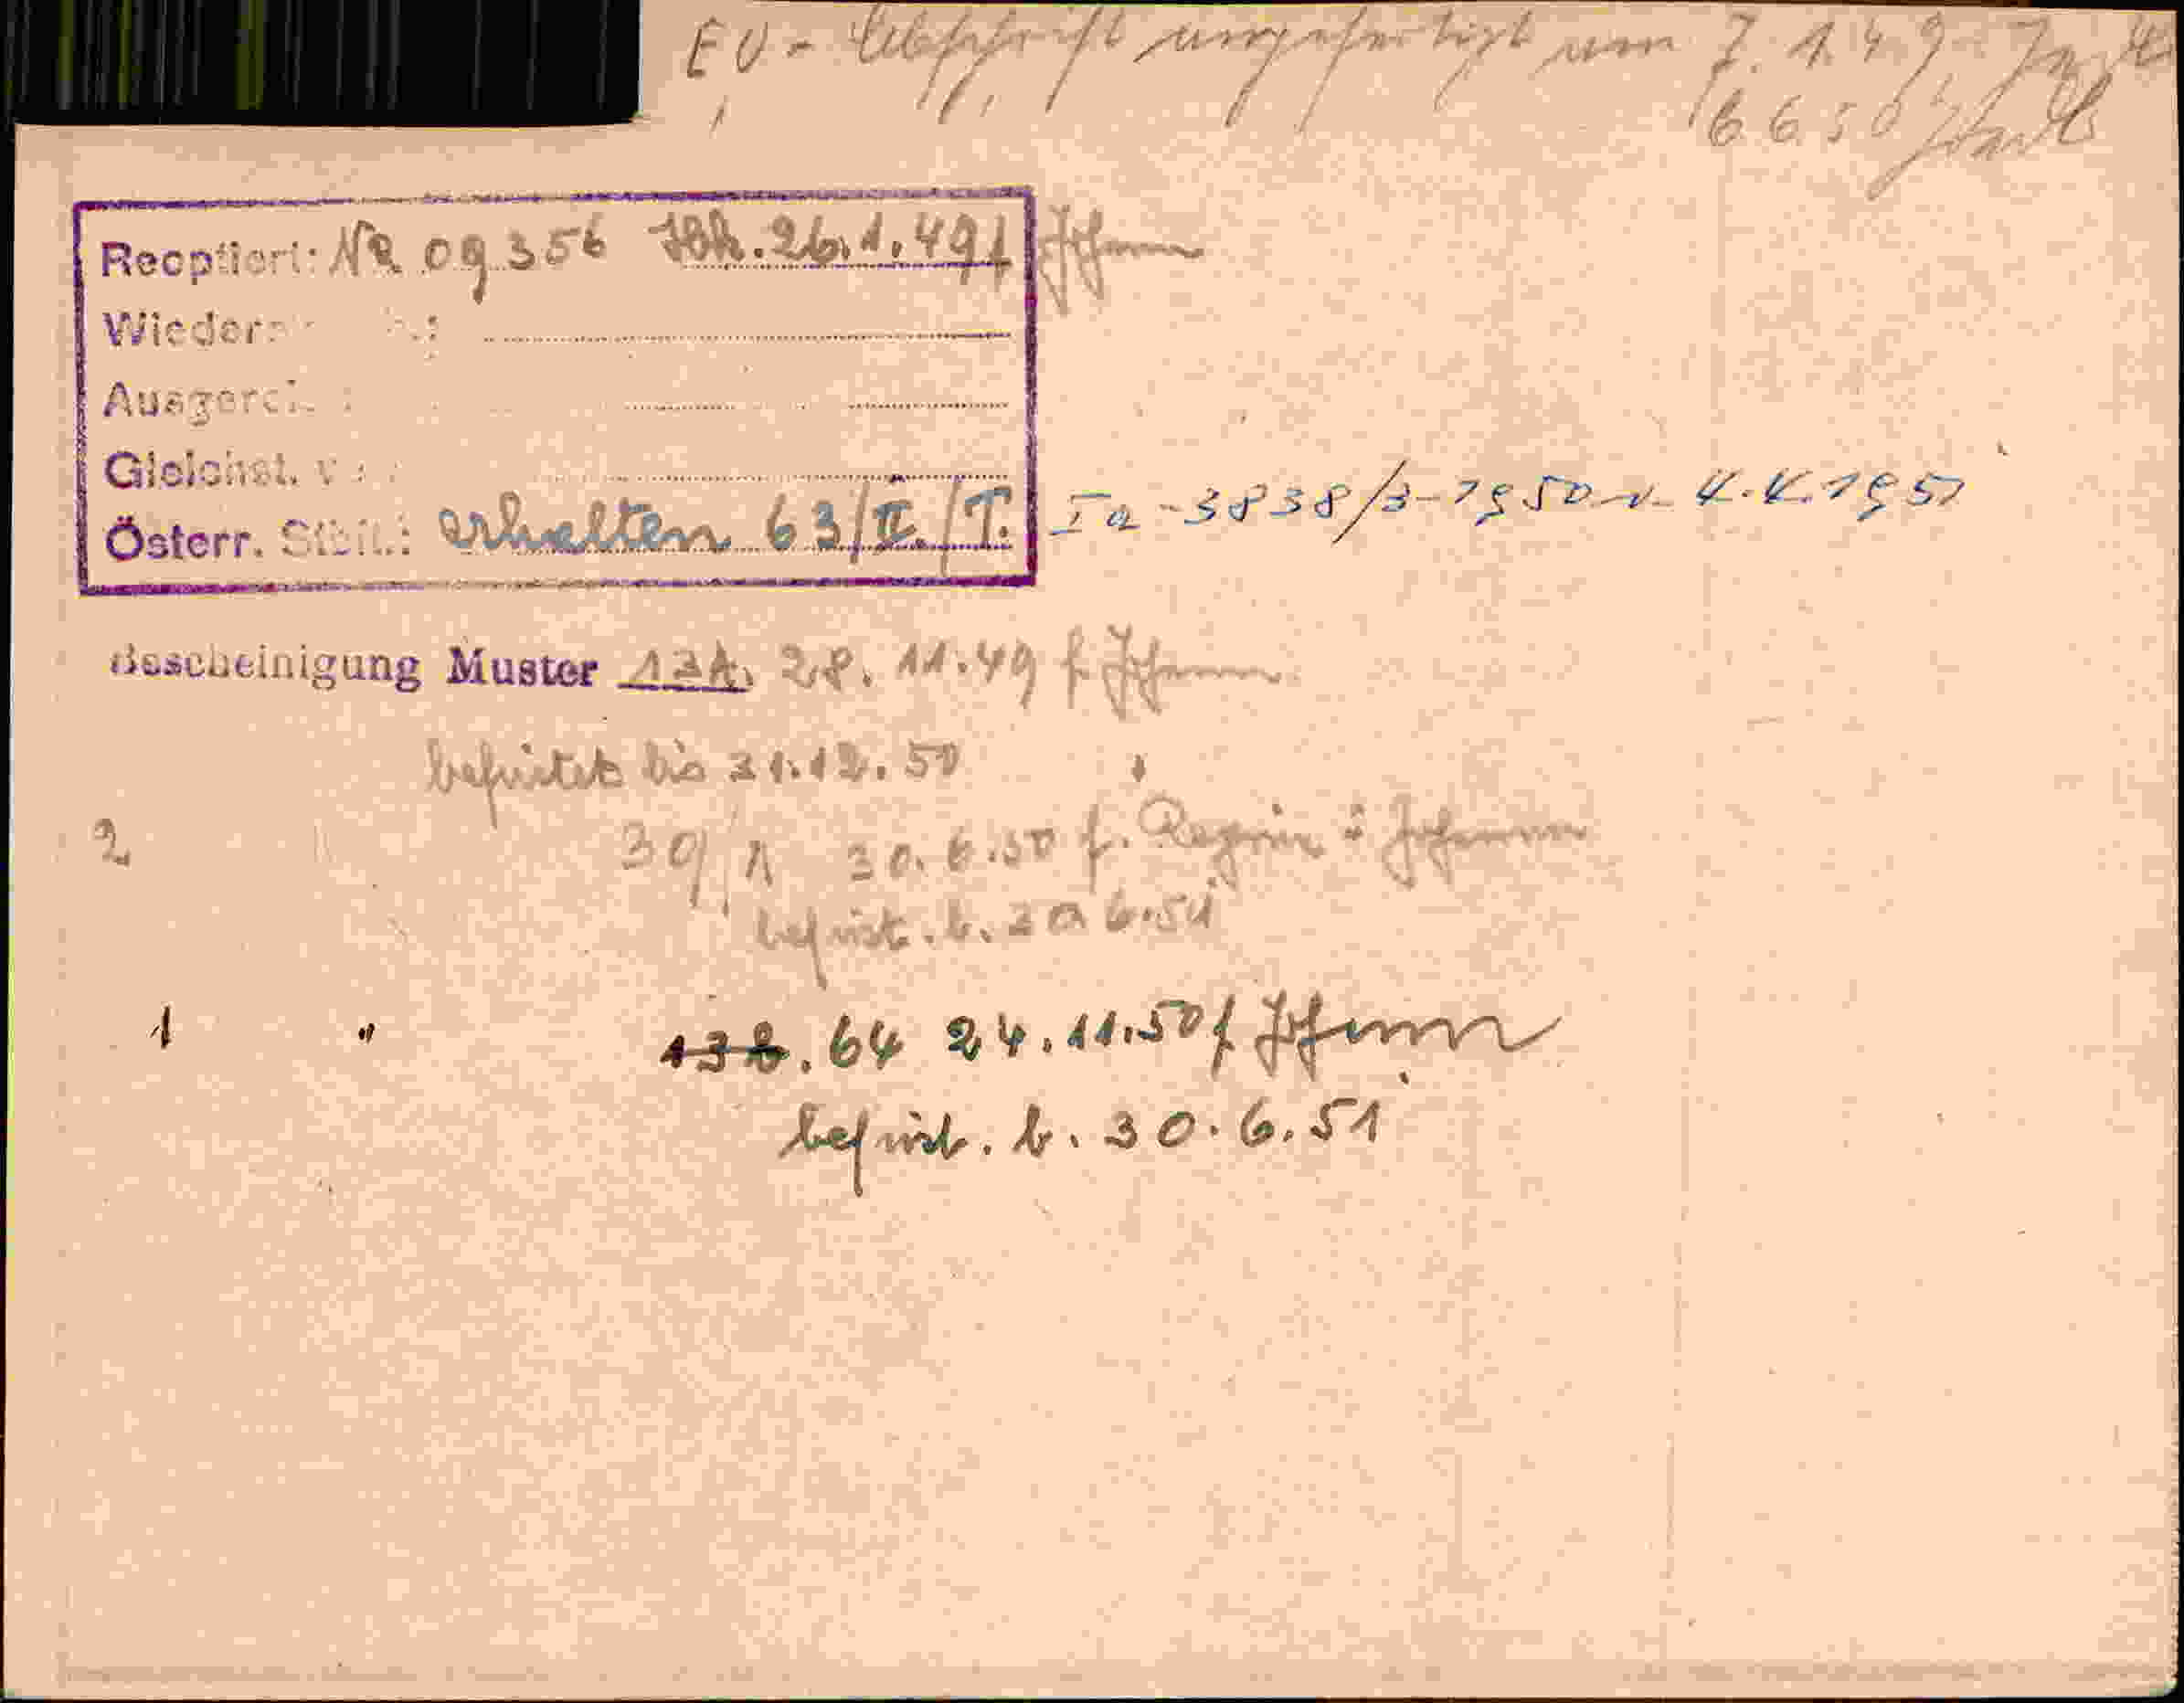 EU - Abschrift ausgefertigt am 7.1.49
6.6.50
Reoptiert: No 09356 Ibk. 26.1.49 f Johann
Wieder
Ausger
Gleichst. v
Österr. Stb.: erhalten 63/II./T. Ia-3838/3-1950 v. 4.4.1951
Bescheinigung Muster 13A. 28.11.49 f Johann
befristet bis 31.12.50
2 30/1 30.6.50 f. Regina u Johann
befrist. b. 30.6.51
1 " 138.64 24.11.50 f Johann
befrist. b. 30.6.51